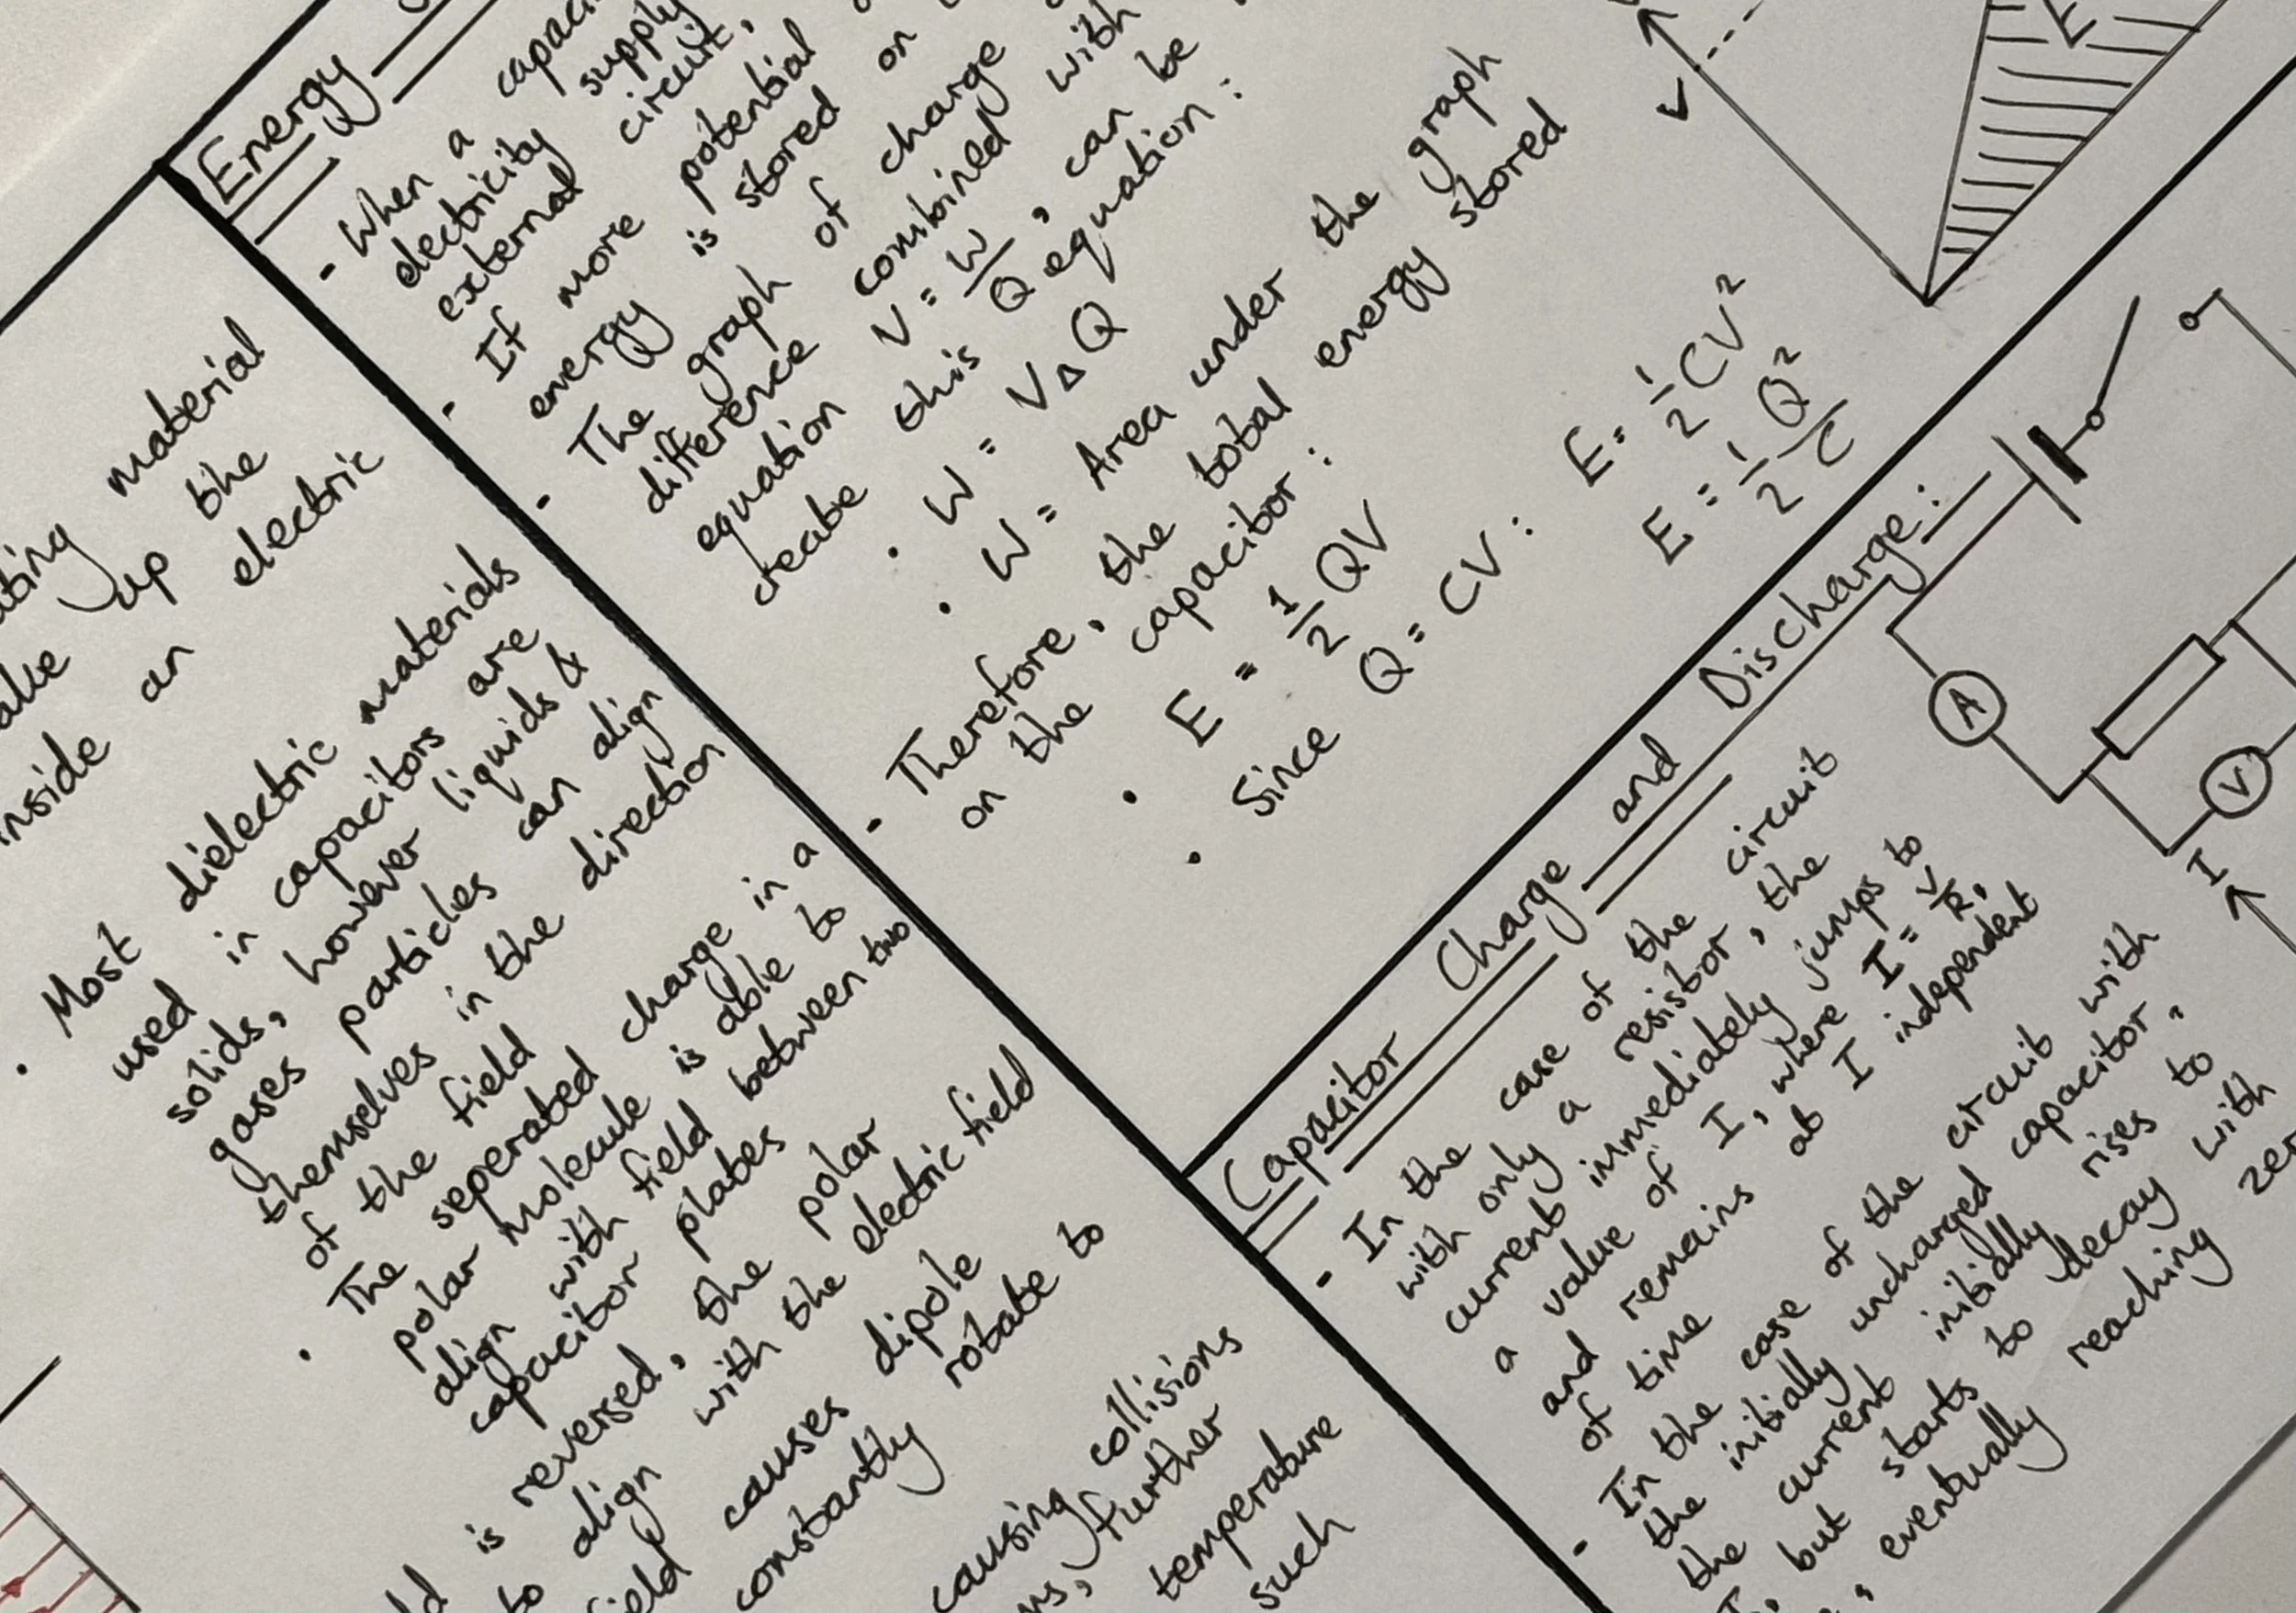 Energy
- When a capaci
electricity supply
external circuit,
- If more potential
energy is stored on
- The graph of charge
difference combined with
equation V = W/Q, can be
create this equation:
• W = V△Q
• W = Area under the graph
- Therefore, the total energy stored
on the capacitor:
• E = 1/2 QV
• Since Q = CV: E = 1/2 CV²
E = 1/2 Q²/C
V
E
ating material
up the
inside an electric
• Most dielectric materials
used in capacitors are
solids, however liquids &
gases particles can align
themselves in the direction
of the field
• The seperated charge in a
polar molecule is able to
align with field between two
capacitor plates
is reversed, the polar
to align with the electric field
field causes dipole
constantly rotate to
causing collisions
further
temperature
such
Capacitor Charge and Discharge:
- In the case of the circuit
with only a resistor, the
current immediately jumps to
a value of I, where I = V/R,
and remains at I independent
of time
- In the case of the circuit with
the initially uncharged capacitor,
the current initially rises to
I, but starts to decay with
, eventually reaching
A
V
I